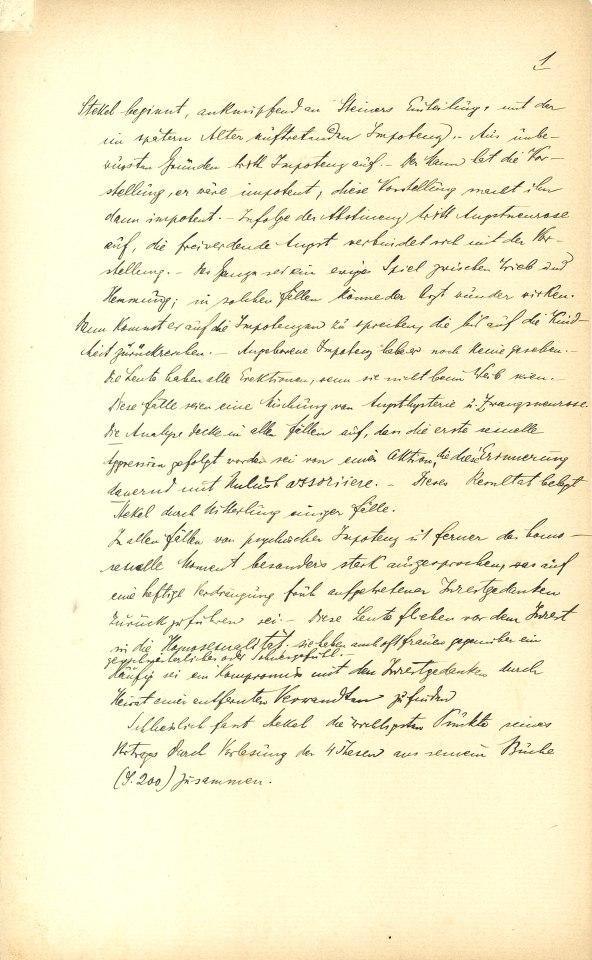 1
Stekel beginnt, anknüpfend an Steiners Einteilung, mit der
im spätern Alter auftretenden Impotenz. – Aus unbe-
wussten Gründen tritt Impotenz auf. – Der Mann hat die Vor-
stellung, er wäre impotent; diese Vorstellung macht ihn
dann impotent. – Infolge der Abstinenz tritt Angstneurose
auf, die freiwerdende Angst verbindet sich mit der Vor-
stellung. – Das Ganze sei ein ewiges Spiel zwischen Trieb und
Hemmung; in solchen Fällen könne der Arzt wunder wirken.
Dann kommt er auf die Impotenzen zu sprechen, die bis auf die Kind-
heit zurückreichen. – Angeborene Impotenz habe er noch keine gesehen. –
Die Leute haben alle Erektionen, wenn sie nicht beim Weib seien. –
Diese Fälle seien eine Mischung von Angsthysterie u. Zwangsneurose.
Die Analyse decke in allen Fällen auf, dass die erste sexuelle
Aggression gefolgt worden sei von einer Aktion, die diese Erinnerung
dauernd mit Unlust assoziiere. – Dieses Resultat belegt
Stekel durch Mitteilung einiger Fälle.
In allen Fällen von psychischer Impotenz ist ferner das homo-
sexuelle Moment besonders stark ausgesprochen, was auf
eine heftige Verdrängung früh aufgetretener Inzestgedanken
zurückzuführen sei. – Diese Leute fliehen vor dem Inzest
in die Homosexualität. sie haben auch oft Frauen gegenüber ein
geschwisterliches oder Sohnesgefühl. –
Häufig sei ein Kompromis mit den Inzestgedanken durch
Heirat einer entfernten Verwandten zu finden
Schliesslich fasst Stekel die wichtigsten Punkte seines
Vortrags durch Vorlesung der 4 Thesen aus seinem Buche
(S. 200) zusammen.